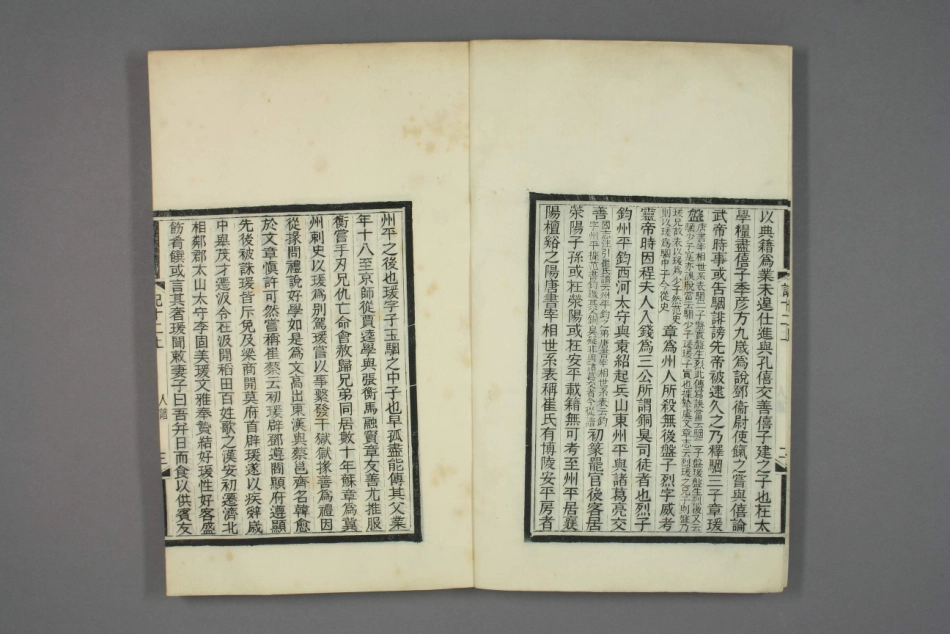 以典籍爲業未遑仕進與孔僖交善僖子建之子也在太
學糧盡僖子季彥方九歲爲說鄧衞尉使餼之嘗與僖論
武帝時事或告駰誹謗先帝被逮久之乃釋駰三子章瑗
盤
章爲州人所殺無後盤子烈字威考
靈帝時因程夫人入錢爲三公所謂銅臭司徒者也烈子
鈞州平鈞西河太守與袁紹起兵山東州平與諸葛亮交
善
初篆罷官後客居
滎陽子孫或在滎陽或在安平載籍無可考至州平居襄
陽檀谿之陽唐書宰相世系表稱崔氏有博陵安平房者
州平之後也瑗字子玉駰之中子也早孤盡能傳其父業
年十八至京師從賈逵學與張衡馬融竇章友善尤推服
衡嘗手刃兄仇亡命會赦歸兄弟同居數十年蘇章爲冀
州刺史以瑗爲別駕瑗嘗以事繫發干獄獄掾善爲禮因
從掾問禮說好學如是爲文高出東漢與蔡邕齊名韓愈
於文章愼許可然嘗稱崔蔡云初瑗辟鄧遵閻顯府遵顯
先後被誅瑗皆斥免及梁商開莫府首辟瑗遂以疾辭歲
中舉茂才遷汲令在汲開稻田百姓歌之漢安初遷濟北
相鄰郡太山太守李固美瑗文雅奉贄結好瑗性好客盛
飭肴饌或言其奢瑗聞敕妻子曰吾幷日而食以供賓友